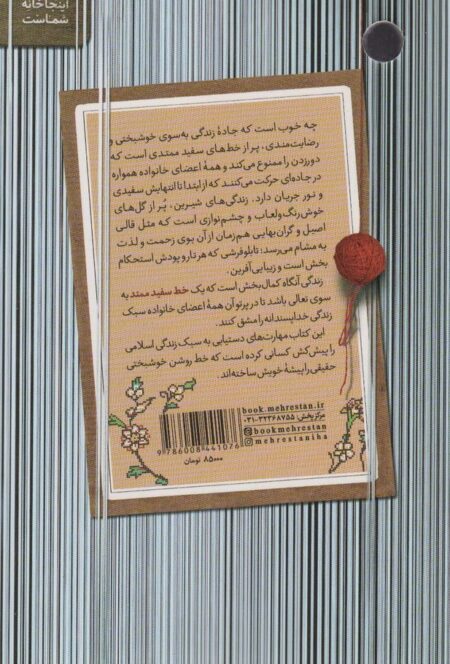 اینجا خانه
شماست
چه خوب است که جادهٔ زندگی به‌سوی خوشبختی و
رضایت‌مندی، پر از خط‌های سفید ممتدی است که
دورزدن را ممنوع می‌کند و همهٔ اعضای خانواده همواره
در جاده‌ای حرکت می‌کنند که از ابتدا تا انتهایش سفیدی
و نور جریان دارد. زندگی‌های شیرین، پُر از گل‌های
خوش‌رنگ‌ولعاب و چشم‌نوازی است که مثل قالی
اصیل و گران‌بهایی هم‌زمان از آن بوی زحمت و لذت
به مشام می‌رسد؛ تابلوفرشی که هر تار و پودش استحکام
بخش است و زیبایی‌آفرین.
زندگی آنگاه کمال‌بخش است که یک خط سفید ممتد به
سوی تعالی باشد تا در پرتو آن همهٔ اعضای خانواده سبک
زندگی خداپسندانه را مشق کنند.
این کتاب مهارت‌های دستیابی به سبک زندگی اسلامی
را پیش‌کش کسانی کرده است که خط روشن خوشبختی
حقیقی را پیشهٔ خویش ساخته‌اند.
book.mehrestan.ir
مرکز پخش: ۳۲۳۶۸۷۵۵-۰۳۱
bookmehrestan
mehrestaniha
9 786008 441076
۸۵۰۰۰ تومان